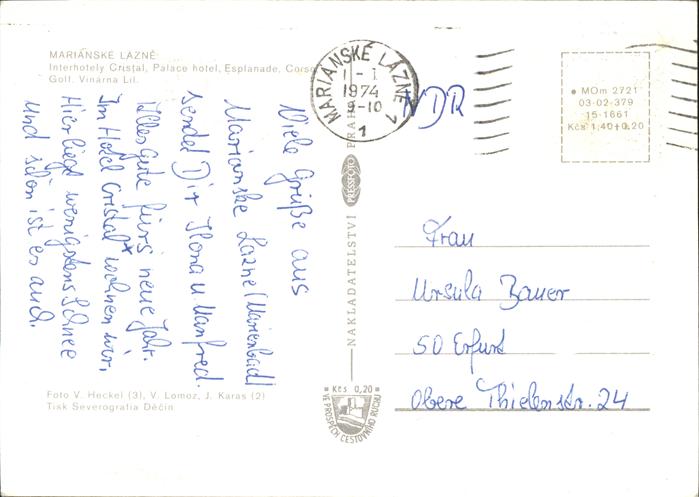 MARIÁNSKÉ LÁZNĚ
Interhotely Cristal, Palace hotel, Esplanade, Corso
Golf. Vinárna Lil.
Viele Grüße aus
Marianske Lazne (Marienbad)
sendet Dir Ilona u Manfred.
Alles Gute fürs neue Jahr.
Im Hotel Cristal wohnen wir,
Hier liegt wenigstens Schnee
und schön ist es auch.
Foto V. Heckel (3), V. Lomoz, J. Karas (2)
Tisk Severografia Děčín
MARIÁNSKÉ LÁZNĚ 1
1 - 1
1974
9-10
1
NAKLADATELSTVÍ PRESSFOTO PRAHA
Kčs 0,20
VE PROSPĚCH CESTOVNÍHO RUCHU
NDR
MOm 2721
03-02-379
15-1661
Kčs 1,40+0,20
Frau
Ursula Bauer
50 Erfurt
Obere Thielenstr. 24